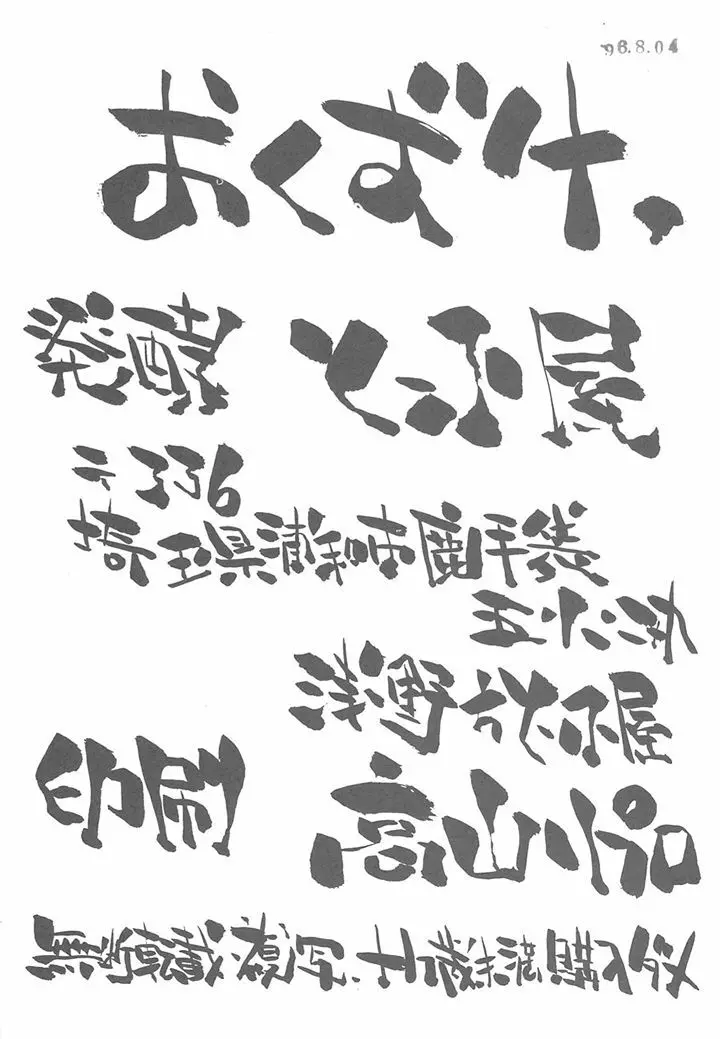 96.8.04
おくずけ、
発酵 とうふ屋
〒336
埼玉県浦和市鹿手袋
浅野方とうふ屋
印刷 高山プロ
無断転載、複写、十八歳未満購入ダメ